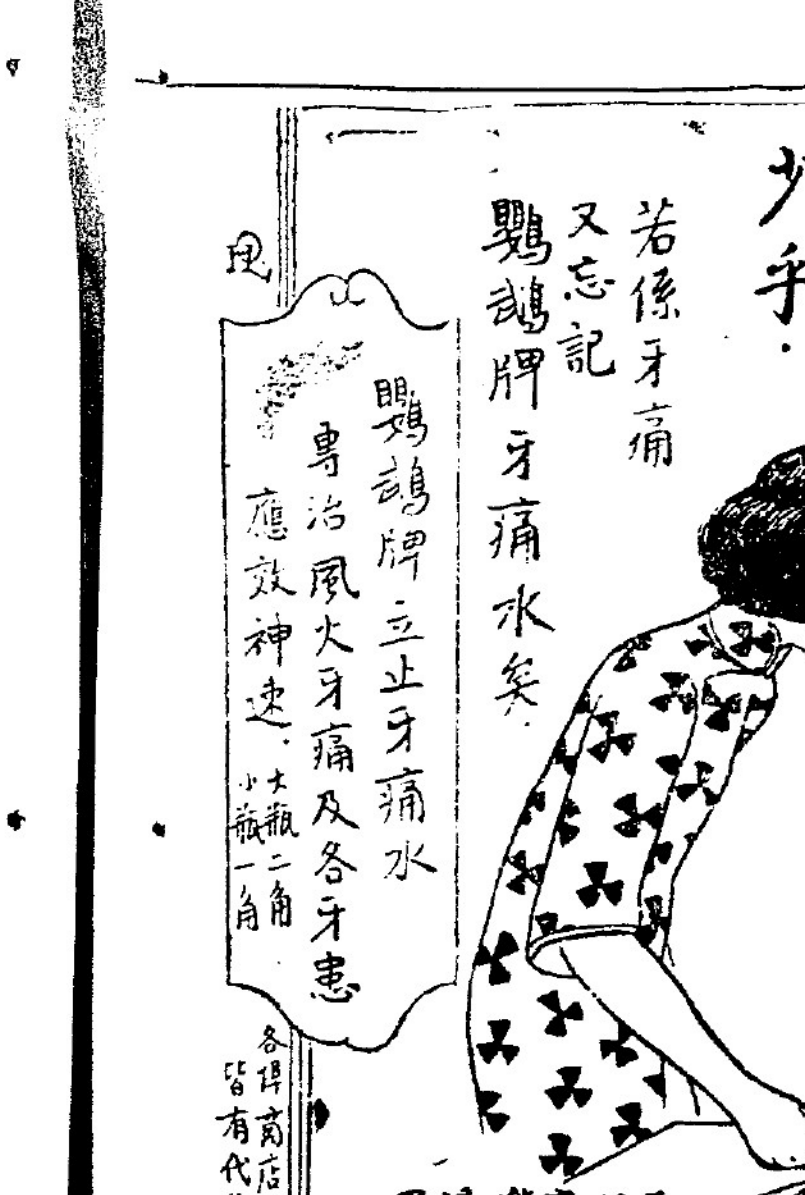 少乎.
若係牙痛
又忘記
鸚鵡牌牙痛水矣.
鸚鵡牌立止牙痛水
專治風火牙痛及各牙患
應效神速.
大瓶二角
小瓶一角
各埠商店
皆有代